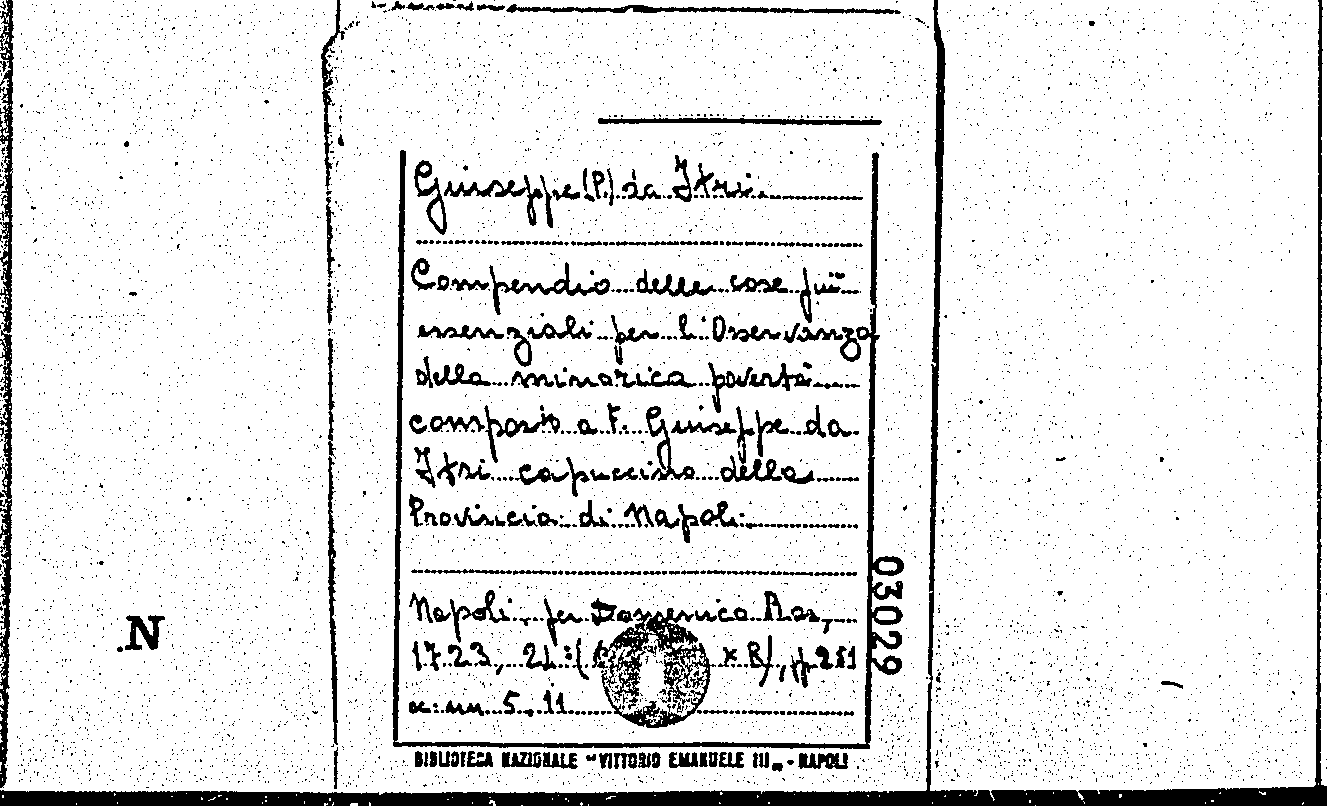 Giuseppe (P.) da Itri.
Compendio delle cose più
essenziali per l'Osservanza
della minorica povertà
composto a F. Giuseppe da
Itri capuccino della
Provincia di Napoli.
Napoli, per Domenico
1723, 21:( x R), p. 251
5, 11
03029
.N
BIBLIOTECA NAZIONALE "VITTORIO EMANUELE III„ - NAPOLI